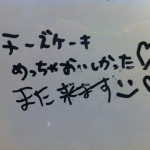 チーズケーキ
めっちゃおいしかった♡
また来ます☺♡